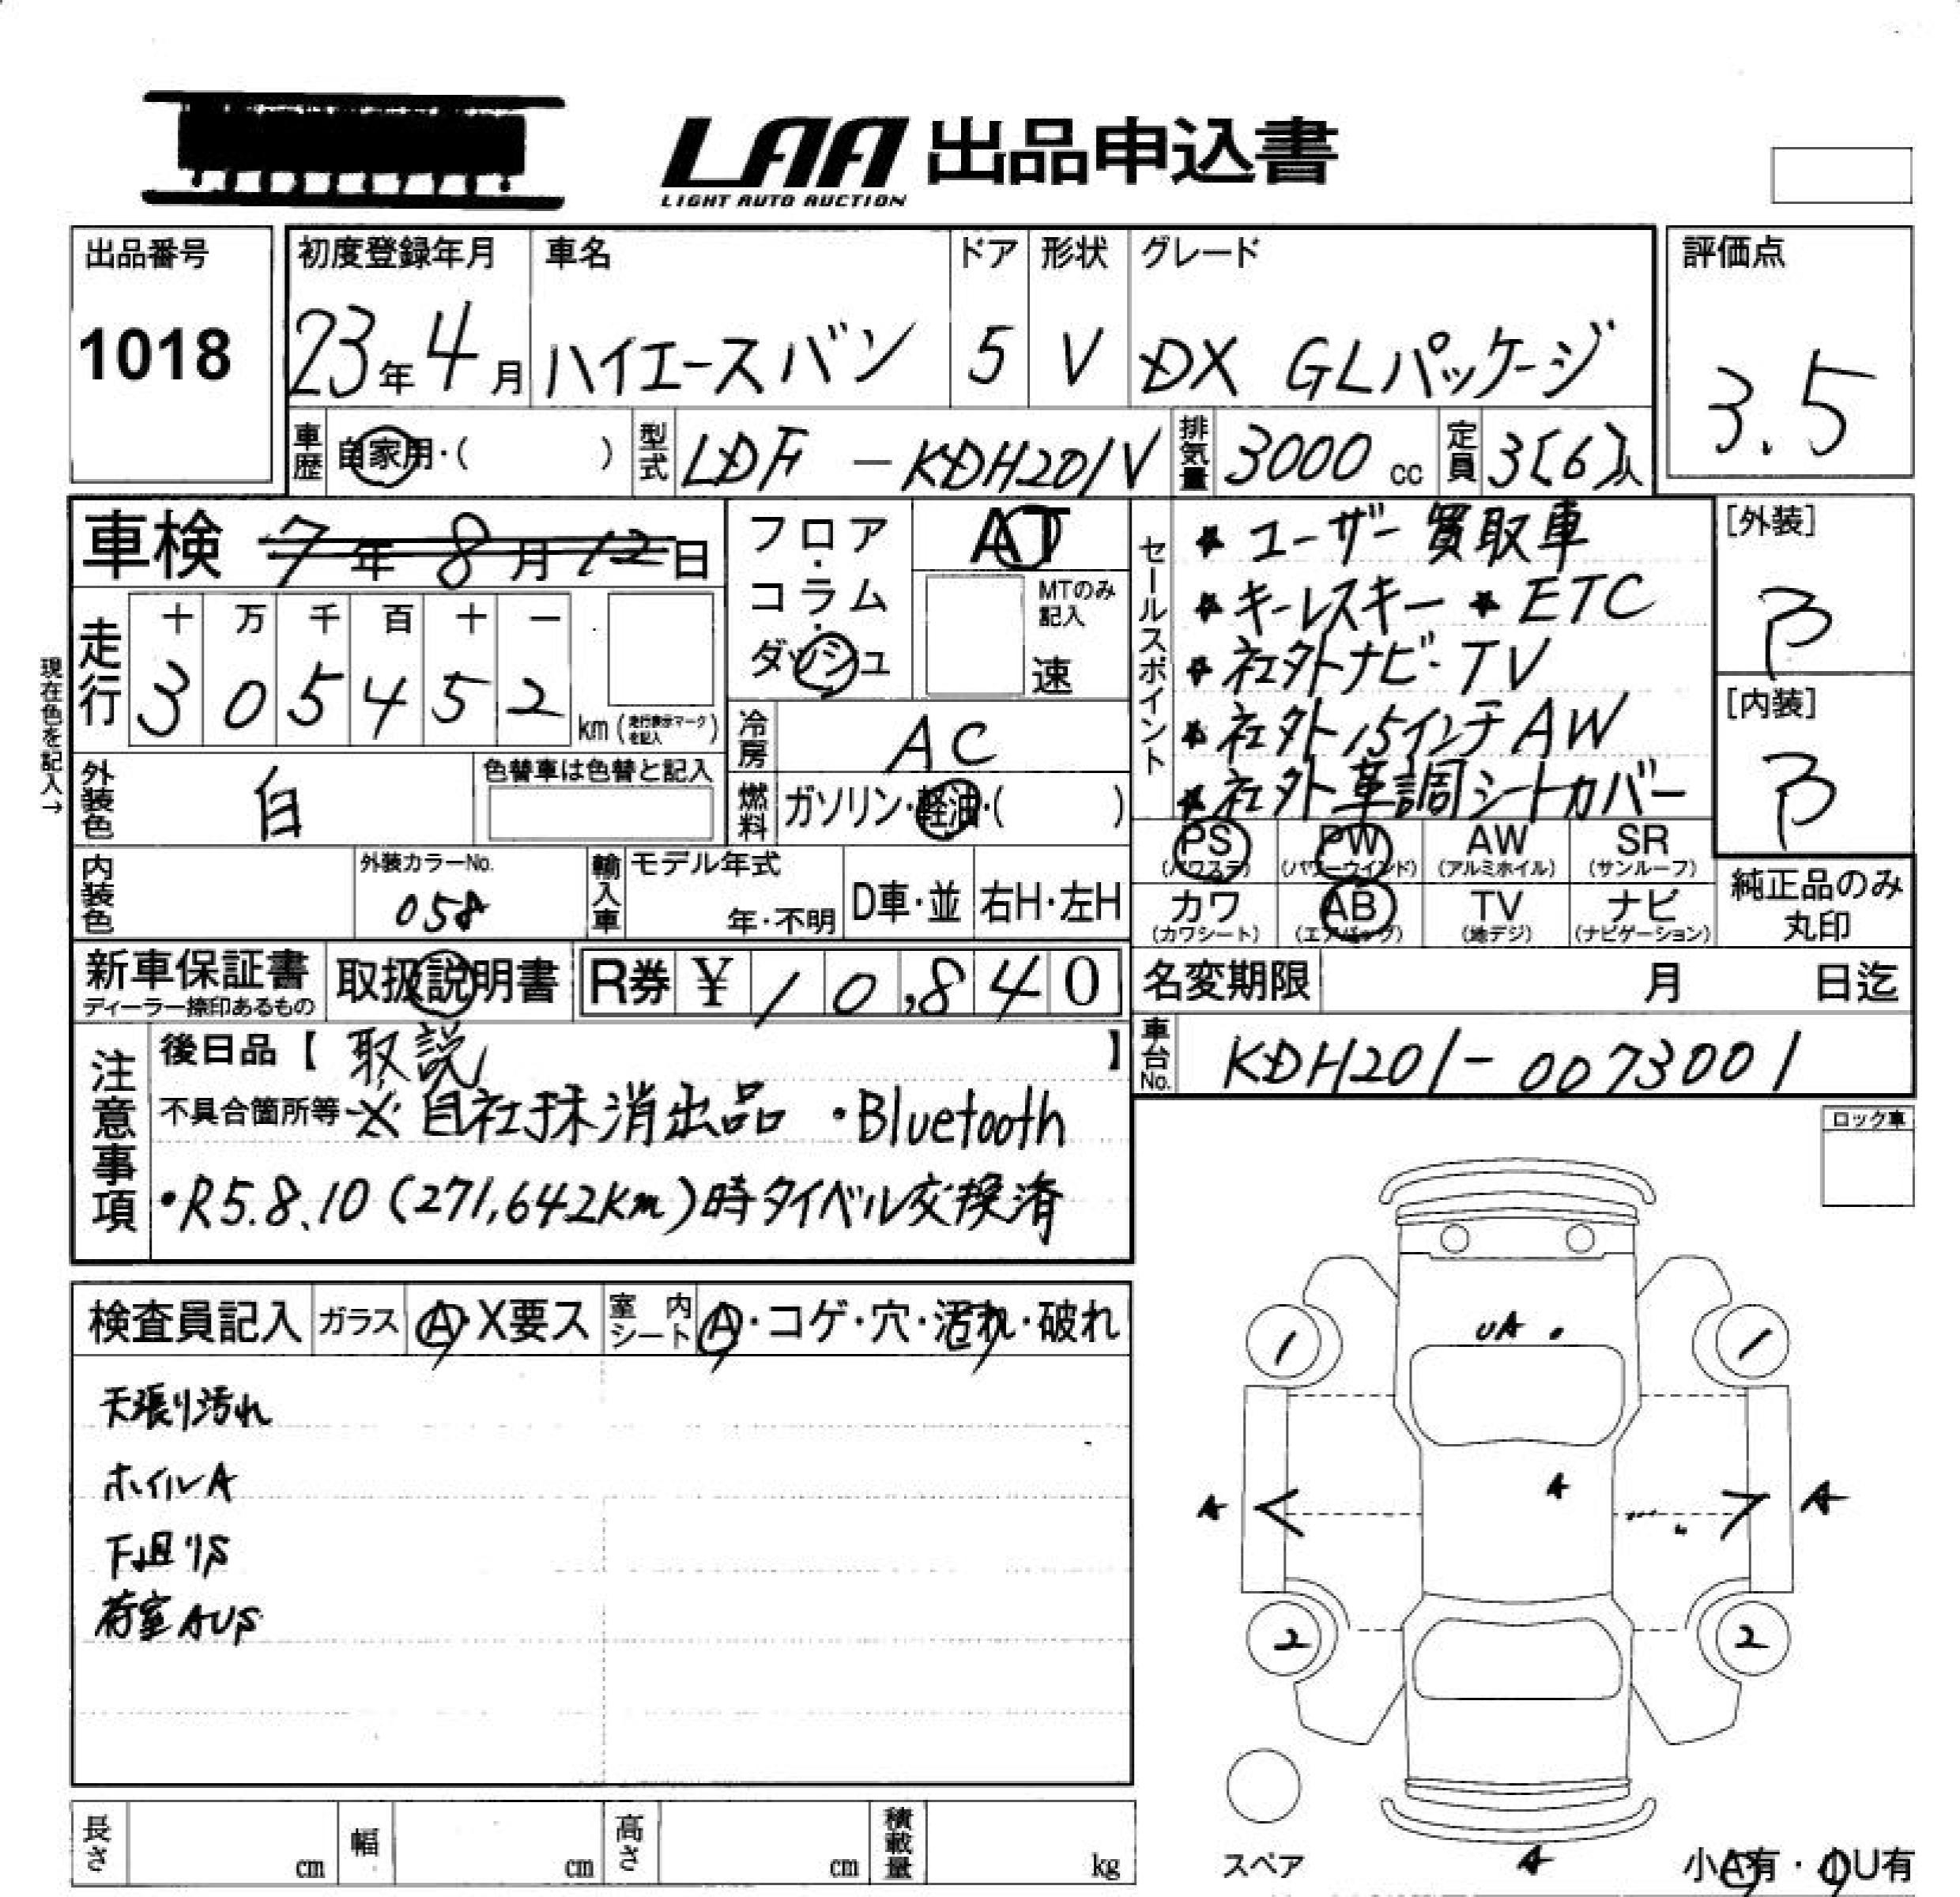 LAA 出品申込書
LIGHT AUTO AUCTION
出品番号
1018
初度登録年月
23年4月
車名
ハイエースバン
ドア
5
形状
V
グレード
DX GLパッケージ
評価点
3.5
車歴
自家用・( )
型式
LDF-KDH201V
排気量
3000 cc
定員
3[6]人
車検 7年8月12日
走行
十 万 千 百 十 一
3 0 5 4 5 2
km(走行表示マークを記入)
現在色を記入→
外装色
白
色替車は色替と記入
内装色
外装カラーNo.
058
フロア・コラム・ダッシュ
AT
MTのみ記入
速
冷房
AC
燃料
ガソリン・軽油・( )
輸入車
モデル年式
年・不明
D車・並
右H・左H
セールスポイント
★ユーザー買取車
★キーレスキー ★ETC
★社外ナビ・TV
★社外15インチAW
★社外革調シートカバー
[外装]
B
[内装]
B
PS (パワステ)
PW (パワーウインド)
AW (アルミホイル)
SR (サンルーフ)
カワ (カワシート)
AB (エアバック)
TV (地デジ)
ナビ (ナビゲーション)
純正品のみ丸印
新車保証書
ディーラー捺印あるもの
取扱説明書
R券 ¥10,840
名変期限 月 日迄
車台No.
KDH201-0073001
注意事項
後日品【 取説 】
不具合箇所等 ※自社抹消出品 ・Bluetooth
・R5.8.10(271,642km)時タイベル交換済
ロック車
検査員記入
ガラス
A・X要ス
室内シート
A・コゲ・穴・汚れ・破れ
天張り汚れ
ホイルA
下廻りS
荷室AUS
UA
1
1
A
A
A
2
2
A
スペア
小A有・小U有
長さ cm
幅 cm
高さ cm
積載量 kg